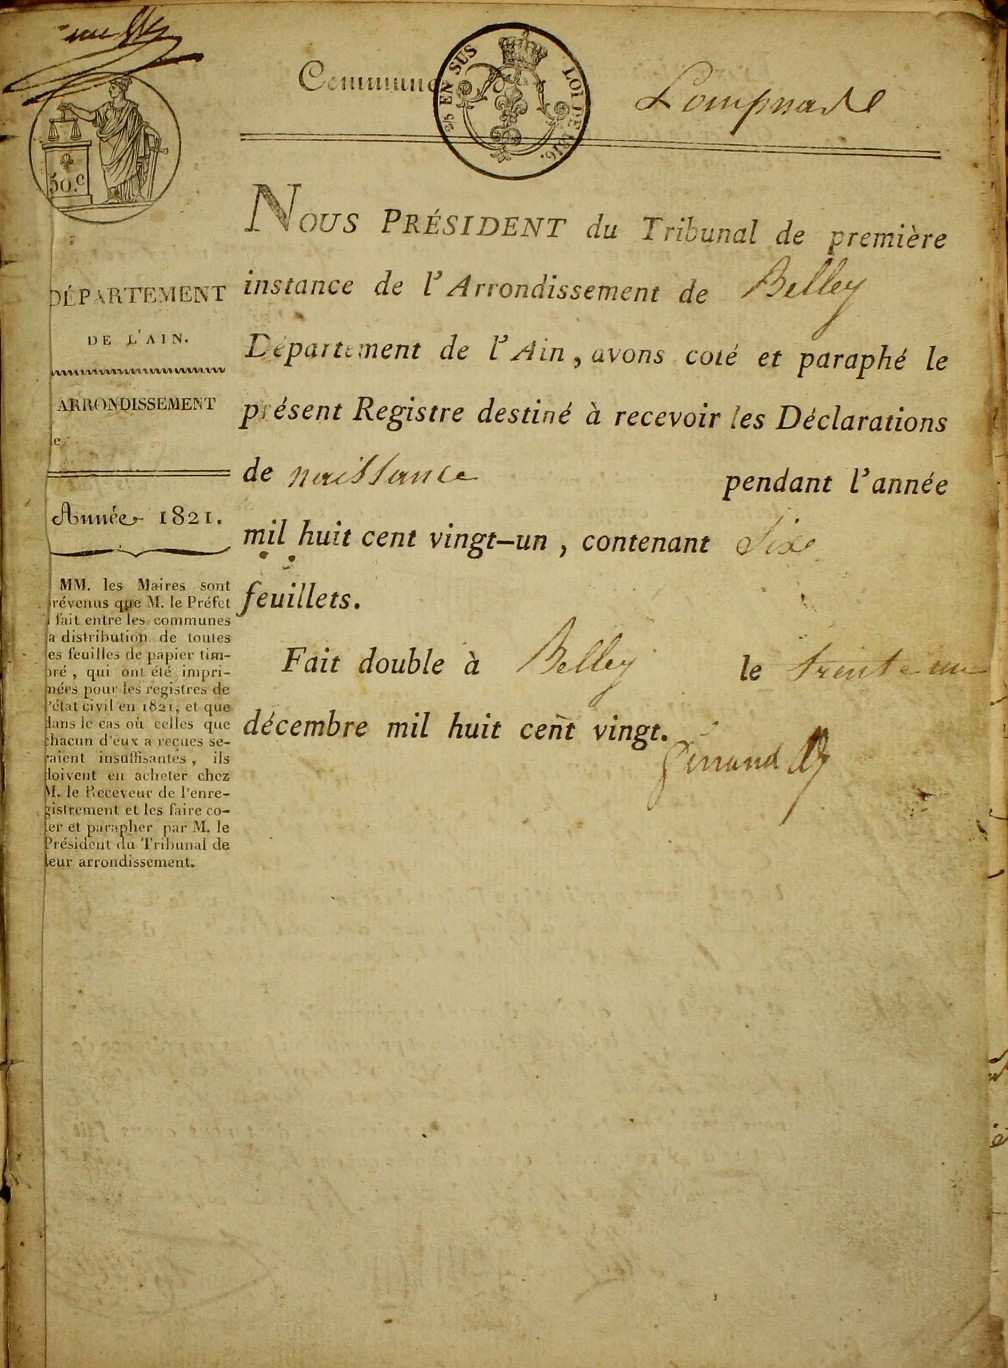 Commune
2/5 EN SUS
LOI DE 1816.
Lompnas
50.c
NOUS PRÉSIDENT du Tribunal de première
instance de l'Arrondissement de Belley
Département de l'Ain, avons coté et paraphé le
présent Registre destiné à recevoir les Déclarations
de naissance pendant l'année
mil huit cent vingt-un, contenant Six
feuillets.
Fait double à Belley le trente un
décembre mil huit cent vingt.
DÉPARTEMENT
DE L'AIN.
ARRONDISSEMENT
Année 1821.
MM. les Maires sont
révenus que M. le Préfet
fait entre les communes
a distribution de toutes
es feuilles de papier tim-
bré, qui ont été impri-
mées pour les registres de
l'état civil en 1821, et que
dans le cas où celles que
chacun d'eux a reçues se-
raient insuffisantes, ils
doivent en acheter chez
M. le Receveur de l'enre-
gistrement et les faire co-
ter et parapher par M. le
Président du Tribunal de
leur arrondissement.